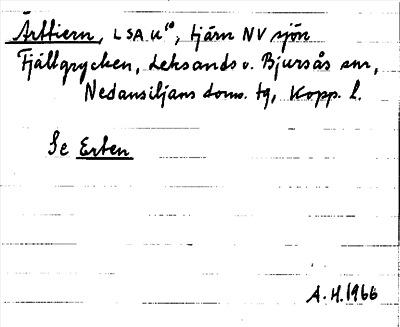 Ärttiern, LSA u¹⁰, tjärn NV sjön
Fjällgrycken, Leksands o. Bjursås snr,
Nedansiljans doms. tg, Kopp. l.
Se Erten
A. H. 1966